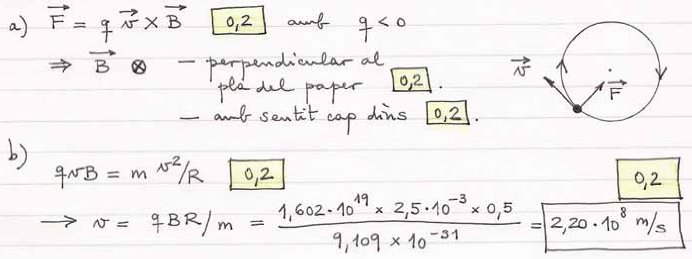 a) F⃗ = q v⃗ × B⃗ 0,2 amb q < 0
⇒ B⃗ ⊗ – perpendicular al
pla del paper 0,2 .
– amb sentit cap dins 0,2 .
v⃗ F⃗
b)
qvB = m v²/R 0,2 0,2
→ v = qBR/m = 1,602·10¹⁹ × 2,5·10⁻³ × 0,5 / 9,109 × 10⁻³¹ = 2,20·10⁸ m/s